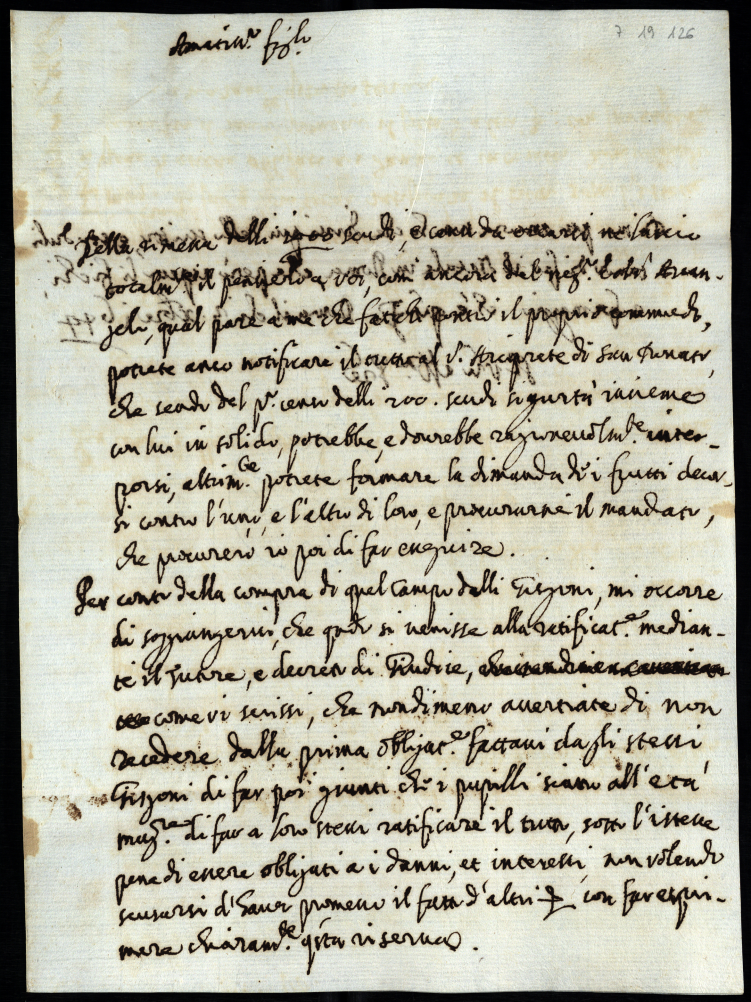 7 19 126
Amatiss.º figl.º
Della rimessa delli scudi, e conti da ne lascio
totalm.te il pensiero a voi, com' ancora del Arcan-
jeli, qual pare a me che il proprio commodo,
potrete anco notificare il tutto al S.r Arciprete di San Donato,
che sendo del p.º censo delli 200. scudi sigurtà insieme
con lui in solido, potrebbe, e dovrebbe ragionevolm.te inter-
porsi, altrim.te potrete formare la dimanda de i frutti decor-
si contro l'uno, e l'altro di loro, e procurarne il mandato,
che procurerò io poi di far eseguire.
Per conto della compra di quel Campo dalli Gisgoni, mi occorre
di soggiungervi, che qndo si venisse alla ratificat.e median-
te il Tutore, e decreto di Giudice,
come vi scrissi, che nondimeno avertiate di non
recedere dalla prima obligat.e fattavi dagli stessi
Gisgoni di far poi giunti che i pupilli siano all'età
magg.re di far a loro stessi ratificare il tutto, sotto l'istessa
pena di essere obligati a i danni, et interessi, non volendo
scusarsi d'haver promesso il fatto d'altri con far espri-
mere chiaram.te q.sta riserva.